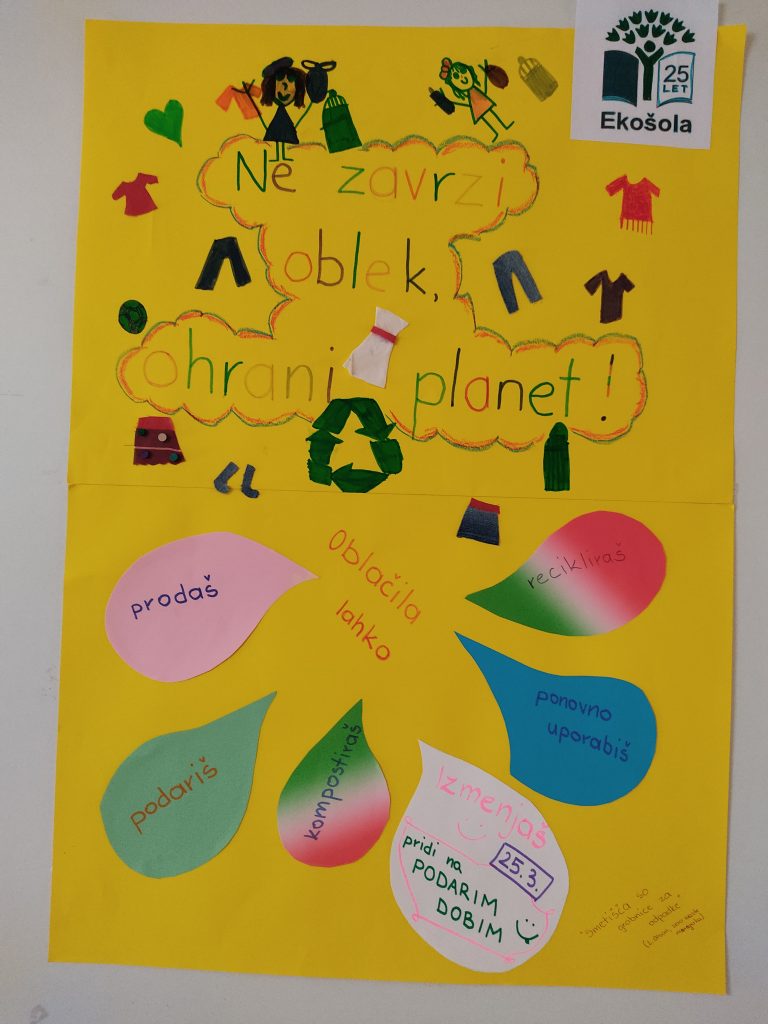 25
LET
Ekošola
Ne zavrzi
oblek,
ohrani planet!
Oblačila
lahko
prodaš
recikliraš
ponovno
uporabiš
podariš
kompostiraš
Izmenjaš
pridi na
25.3.
PODARIM
DOBIM
"Smetišča so
grobnice za
odpadke"